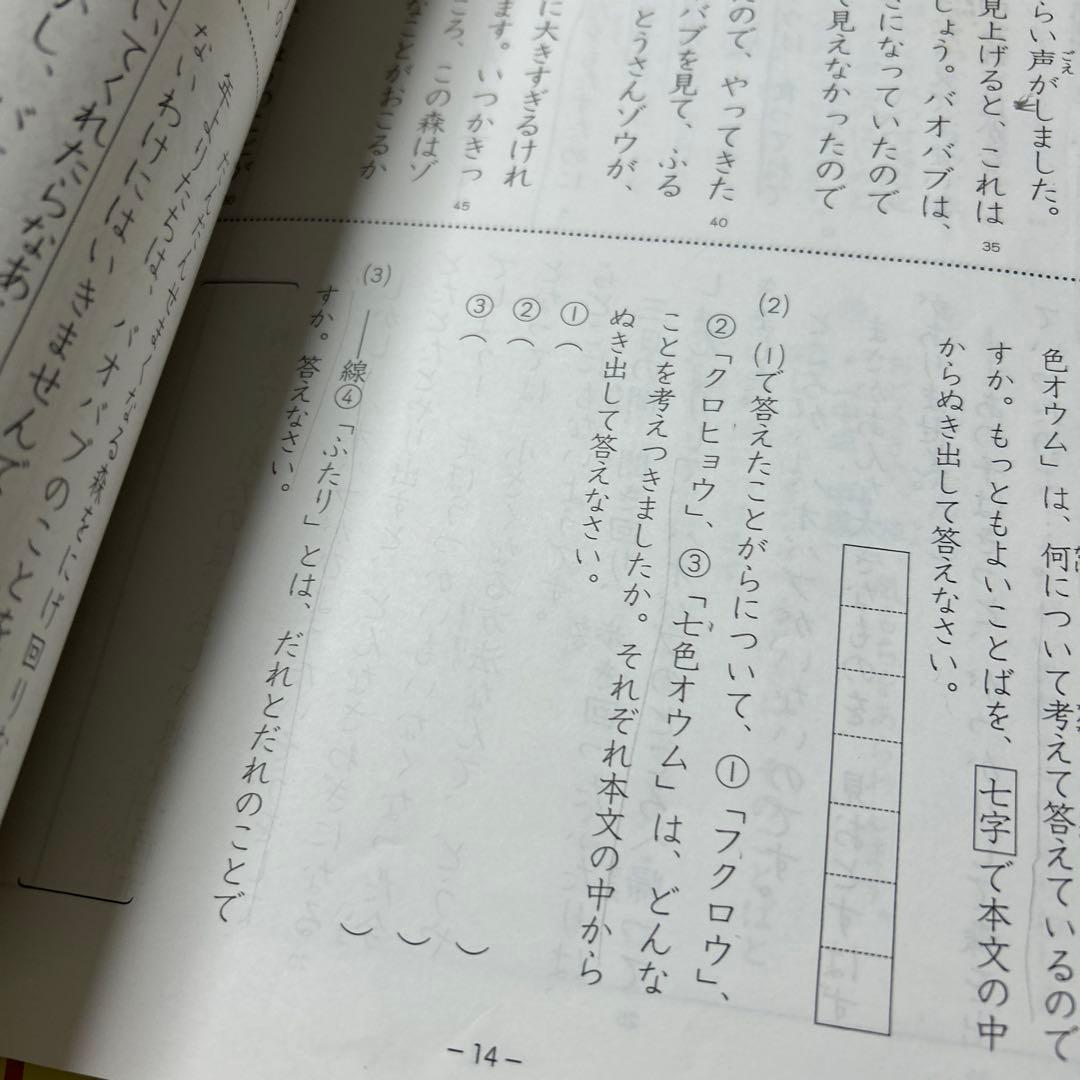 らい声がしました。
ごえ
見上げると、これは
しょう。バオバブは、
きになっていたので
で見えなかったので
35
ので、やってきた
バブを見て、ふる
とうさんゾウが、
40
に大きすぎるけれ
ます。いつかきっ
ころ、この森はゾ
なことがおこるか
45
色オウム」は、何について考えて答えているので
すか。もっともよいことばを、七字で本文の中
からぬき出して答えなさい。
(2) (1)で答えたことがらについて、①「フクロウ」、
②「クロヒョウ」、③「七色オウム」は、どんな
ことを考えつきましたか。それぞれ本文の中から
ぬき出して答えなさい。
①( )
②( )
③( )
(3) ――線④「ふたり」とは、だれとだれのことで
すか。答えなさい。
年よりたちは、バオバブのことを
ないわけにはいきませんで
いてくれたらなあ
-14-